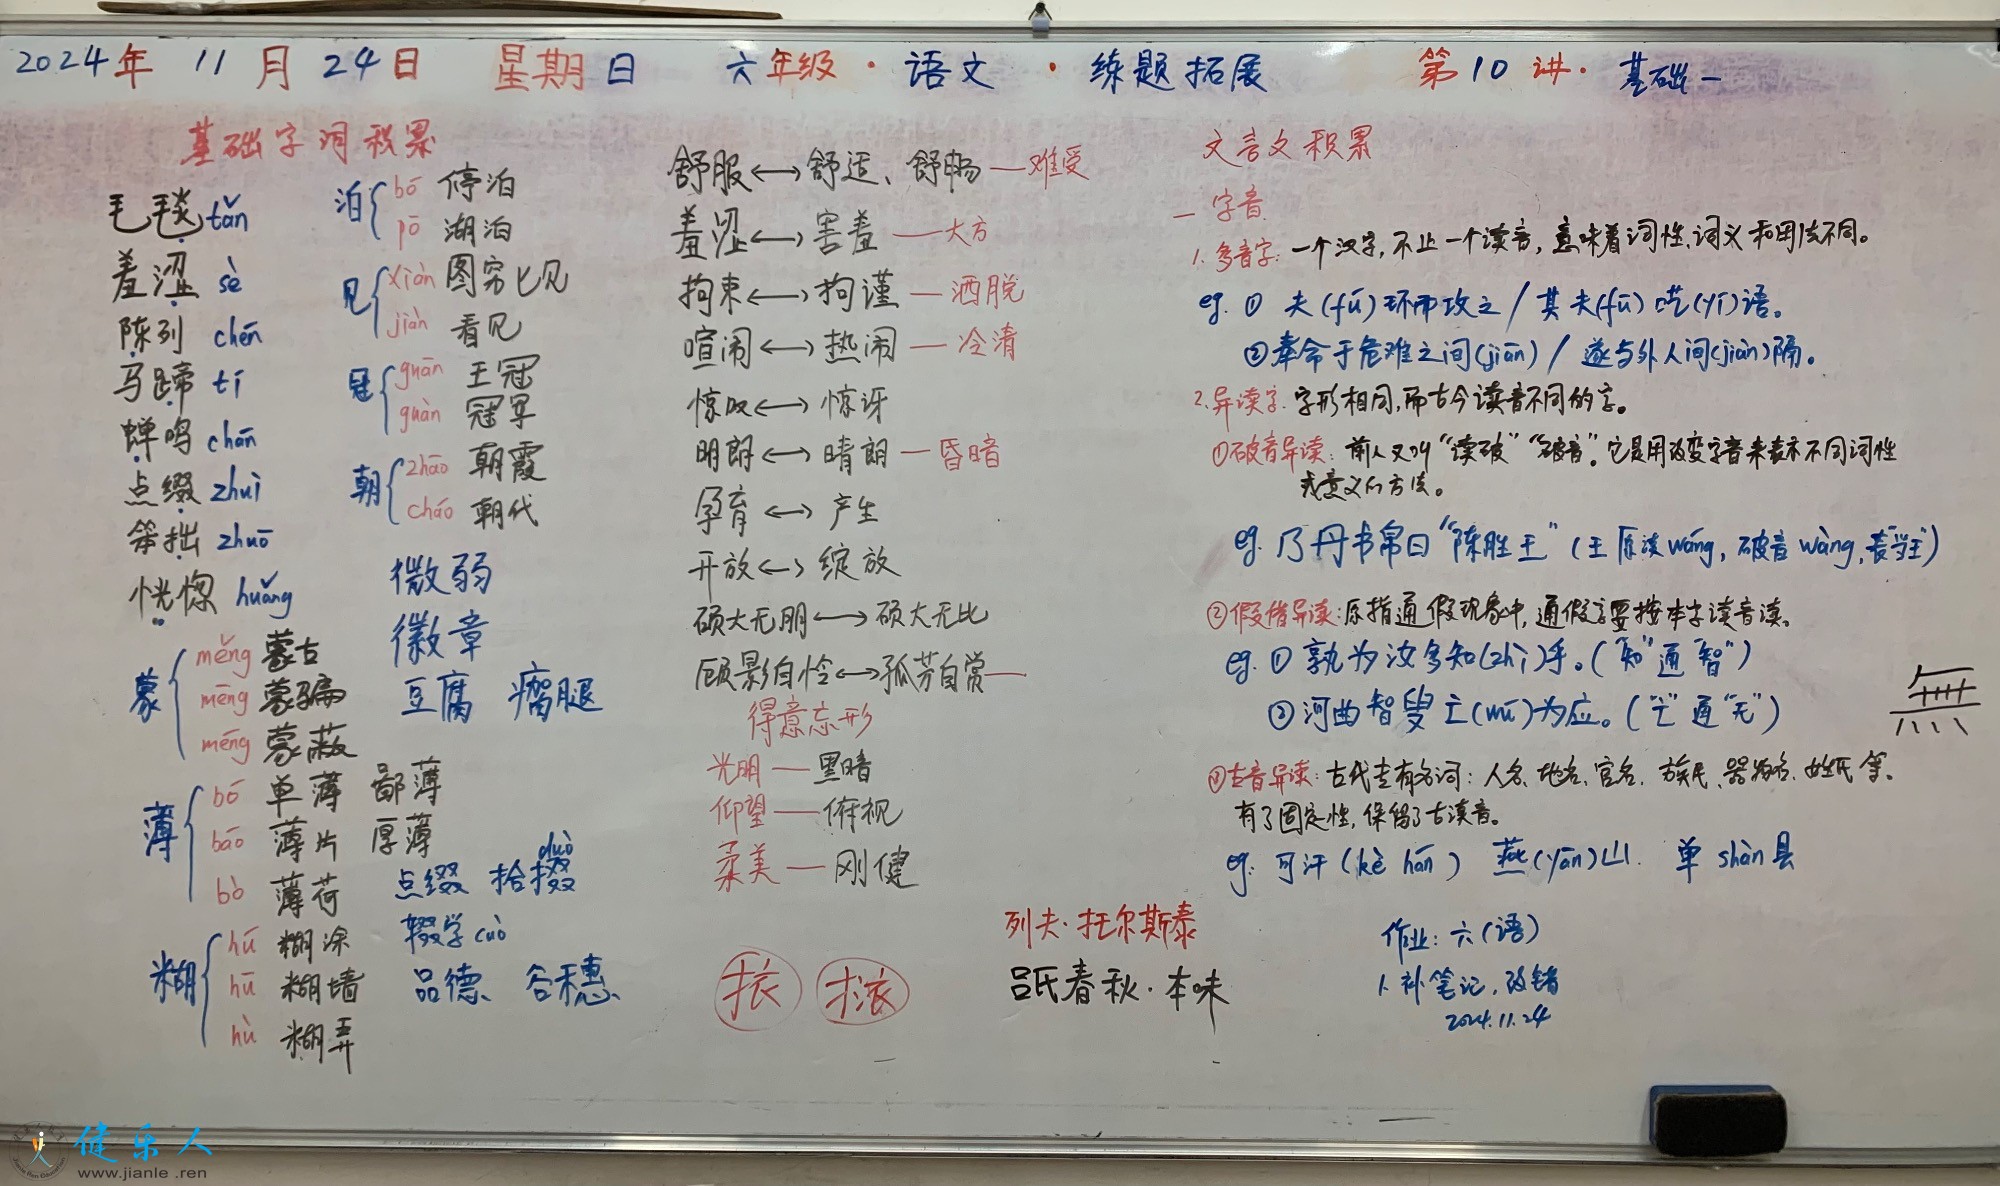 2024年 11月 24日 星期日 六年级·语文·练题拓展 第10讲·基础一
基础字词积累
毛毯 tǎn
羞涩 sè
陈列 chén
马蹄 tí
蝉鸣 chán
点缀 zhuì
笨拙 zhuō
恍惚 huǎng
蒙 měng 蒙古
mēng 蒙骗
méng 蒙蔽
薄 bó 单薄 鄙薄
báo 薄片 厚薄
bò 薄荷
糊 hú 糊涂
hū 糊墙
hù 糊弄
泊 bó 停泊
pō 湖泊
见 xiàn 图穷匕见
jiàn 看见
冠 guān 王冠
guàn 冠军
朝 zhāo 朝霞
cháo 朝代
微弱
徽章
豆腐 瘸腿
duō
点缀 拾掇
辍学 cuò
品德、 谷穗、
舒服←→舒适、舒畅—难受
羞涩←→害羞—大方
拘束←→拘谨—洒脱
喧闹←→热闹—冷清
惊叹←→惊讶
明朗←→晴朗—昏暗
孕育←→产生
开放←→绽放
硕大无朋←→硕大无比
顾影自怜←→孤芳自赏—
得意忘形
光明—黑暗
仰望—俯视
柔美—刚健
列夫·托尔斯泰
吕氏春秋·本味
文言文积累
一 字音
1. 多音字：一个汉字，不止一个读音，意味着词性、词义和用法不同。
eg. ① 夫(fú)环而攻之 / 其夫(fū)呓(yì)语。
② 奉命于危难之间(jiān) / 遂与外人间(jiàn)隔。
2. 异读字：字形相同，而古今读音不同的字。
①破音异读：前人又叫“读破”“破音”。它是用改变字音来表示不同词性
或意义的方法。
eg. 乃丹书帛曰“陈胜王”(王 原读wáng，破音wàng，表“当王”)
②假借异读：原指通假现象中，通假字要按本字读音读。
eg. ① 孰为汝多知(zhì)乎。(“知”通“智”)
② 河曲智叟亡(wú)为应。(“亡”通“无”)
無
③古音异读：古代专有名词：人名、地名、官名、族氏、器物名、姓氏等。
有了固定性，保留了古读音。
eg. 可汗(kè hán) 燕(yān)山 单 shàn 县
作业：六(语)
1. 补笔记，改错
2024.11.24
健乐人
www.jianle.ren